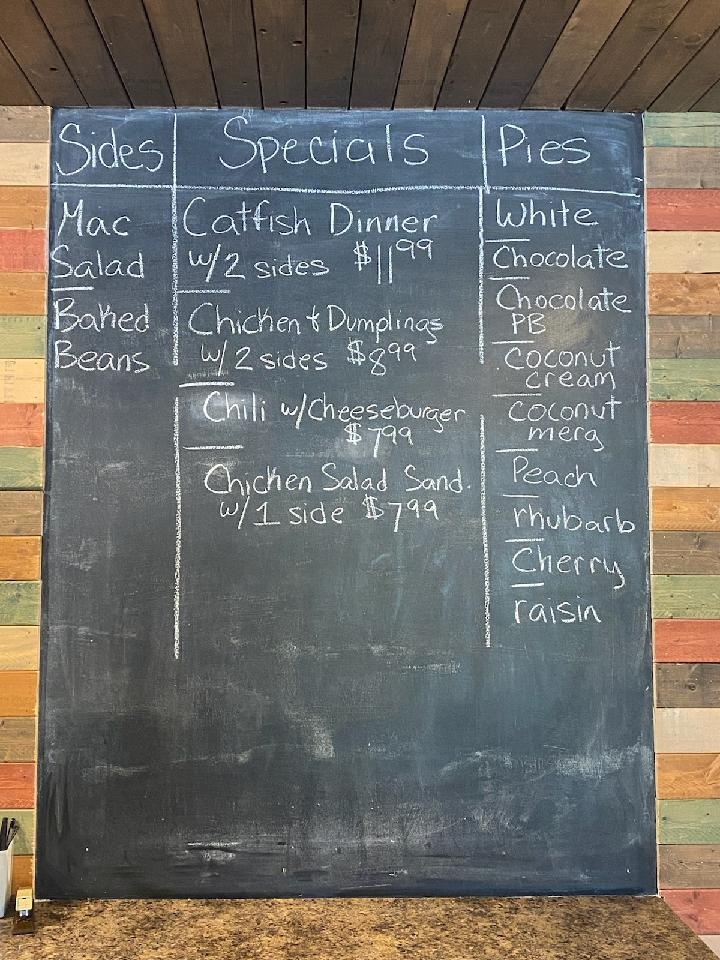 Sides
Mac
Salad
Baked
Beans
Specials
Catfish Dinner
w/2 sides $11.99
Chicken & Dumplings
w/2 sides $8.99
Chili w/Cheeseburger
$7.99
Chicken Salad Sand.
w/1 side $7.99
Pies
White
Chocolate
Chocolate
PB
Coconut
cream
coconut
merg
Peach
rhubarb
Cherry
raisin